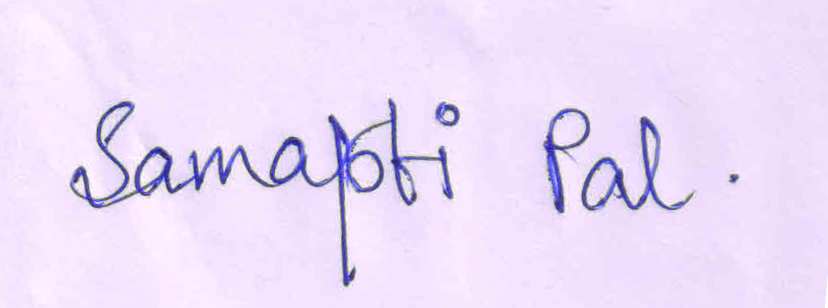 Samapti Pal.